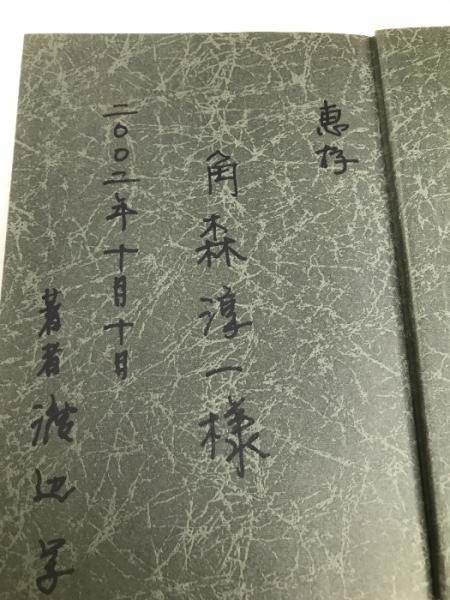 惠存
角森淳一様
二〇〇二年十月十日
著者渡辺学